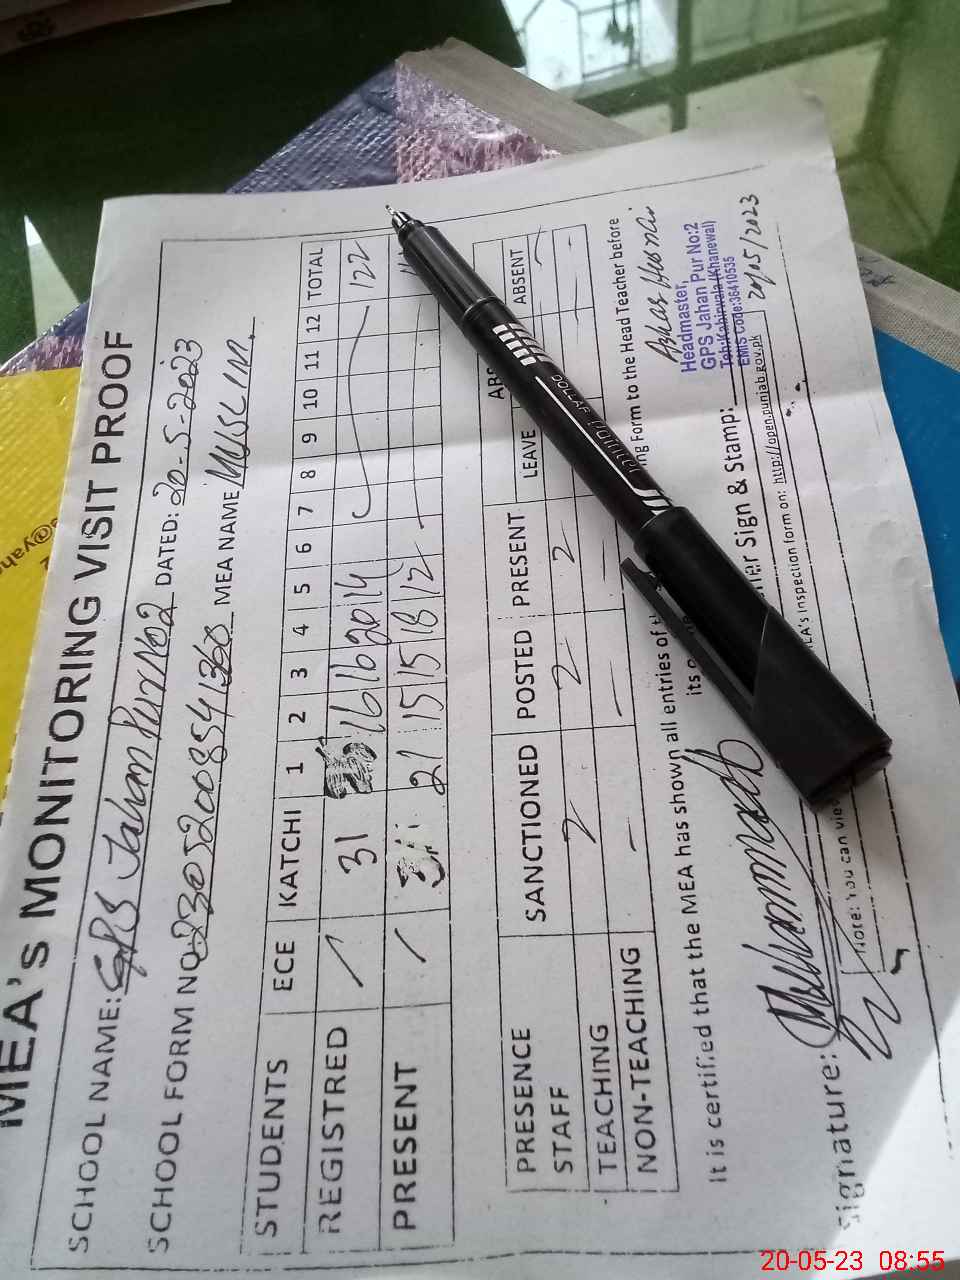 MEA's MONITORING VISIT PROOF
SCHOOL NAME: GPS Jahan Pur No2 DATED: 20-5-2023
SCHOOL FORM NO. MEA NAME MUSLIM.
STUDENTS ECE KATCHI 1 2 3 4 5 6 7 8 9 10 11 12 TOTAL
REGISTRED 31 16 16 20 14 122
PRESENT 21 15 15 18 12
PRESENCE SANCTIONED POSTED PRESENT LEAVE ABSENT
STAFF
TEACHING 2 2 2 - -
NON-TEACHING - - - - -
It is certified that the MEA has shown all entries of ing Form to the Head Teacher before
its
Azhar Husnai
Headmaster,
GPS Jahan Pur No:2
Teh:Kabirwala (Khanewal)
EMIS Code:36410535
20/05/2023
Signature: Muhammad er Sign & Stamp:
Note: You can view EA's inspection form on: http://open.punjab.gov.pk
DOLLAR
@yaho
20-05-23 08:55